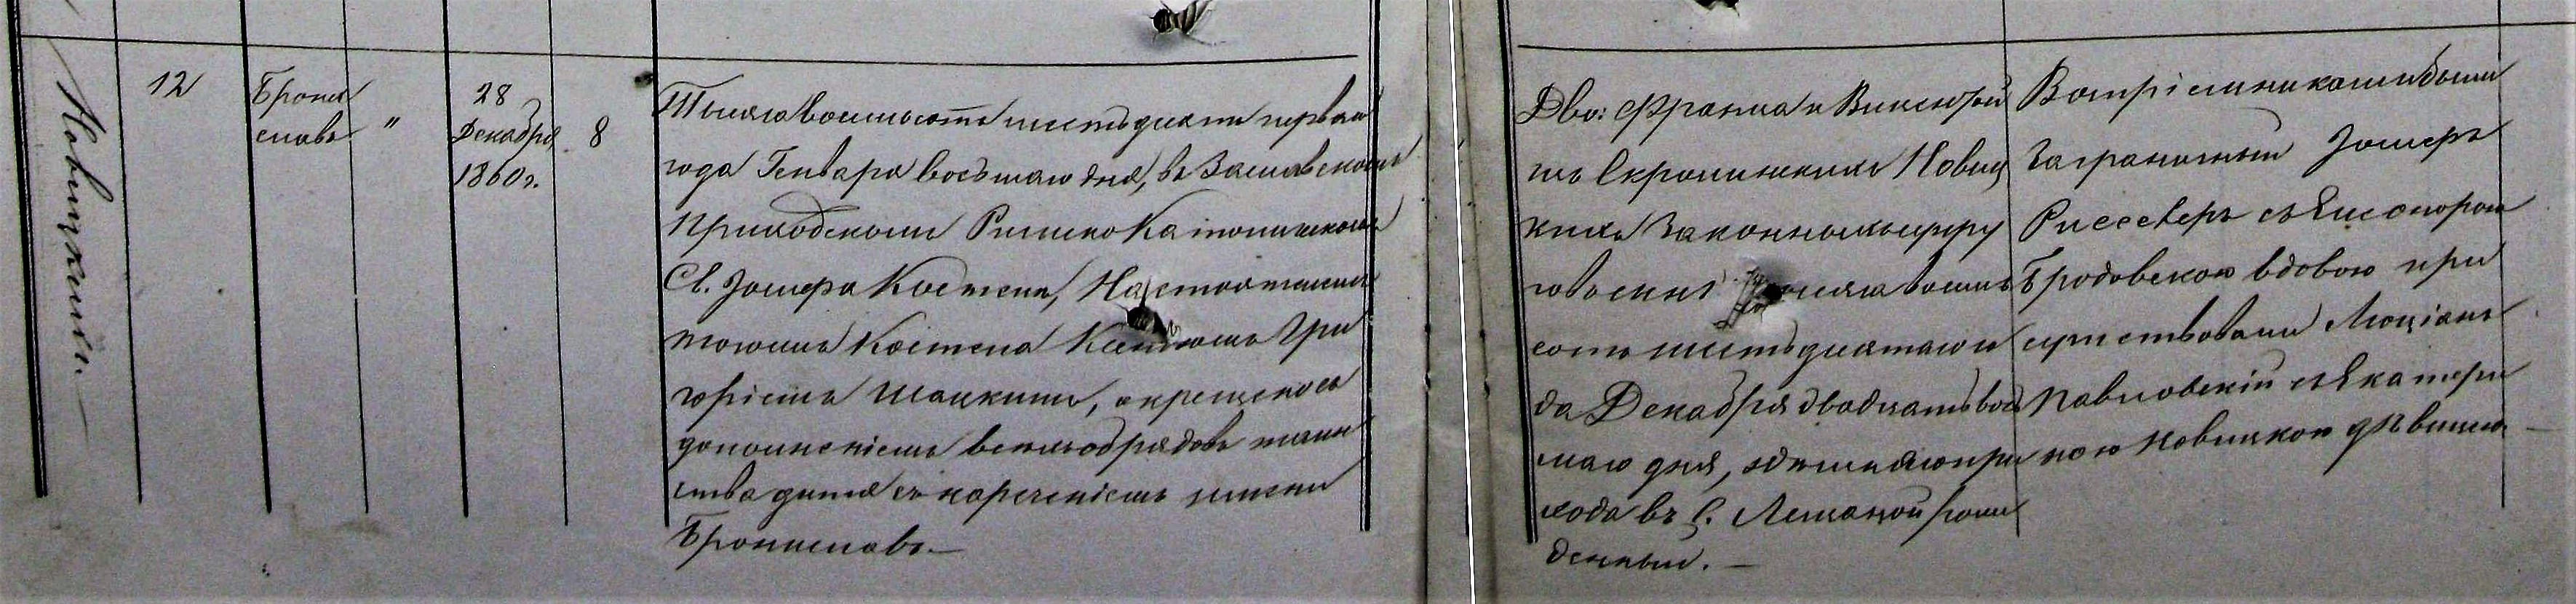 Новицкій
12
Брони
славъ
"
28
Декабря
1860 г.
8
Тысяча восемьсотъ шестьдесятъ перваго
года Генваря восьмаго дня, въ Заславскомъ
приходскомъ Римско Католическомъ
Св. Іосифа Костелѣ, Настоятелемъ
тогожъ Костела Григо
ріемъ Шацкимъ, окрещено съ
дополненіемъ всѣхъ обрядовъ таин
ства дитя съ нареченіемъ имени
Брониславъ.—
Дво: Франца и Викторіи
Новиц
кихъ законныхъ супру
говъ сынъ тысяча восемь
сотъ шестьдесятаго го
да Декабря двадцать вось
маго дня, здѣшняго при
хода въ с. рож
денный.—
Воспріемниками были
заграничный Іосифъ
съ Елеонорою
Бродовскою вдовою при
сутствовали Люціанъ
Павловскій съ Екатери
ною Новицкою дѣвицею—